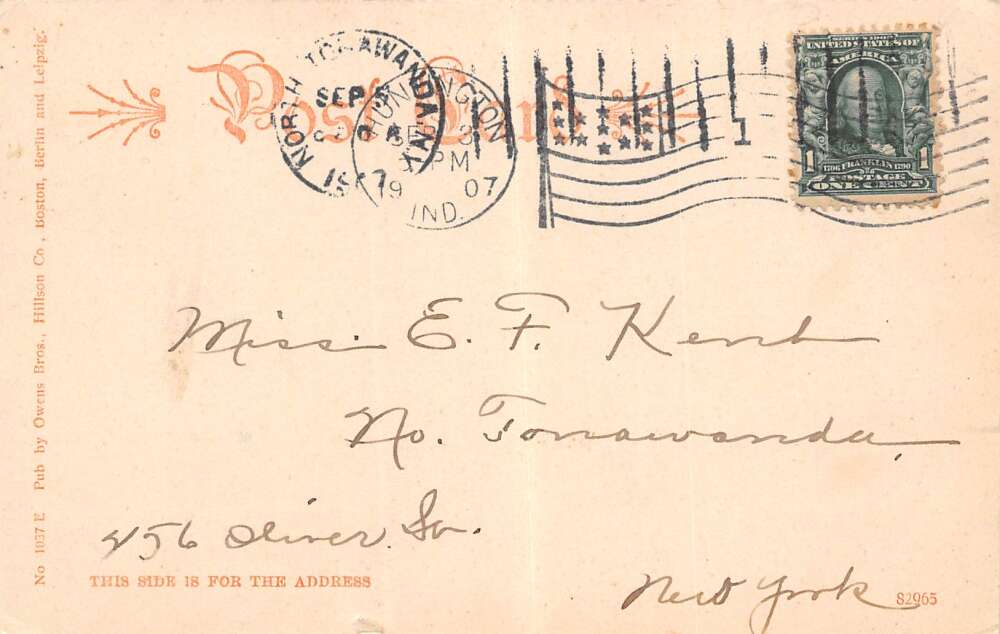 Post Card
NORTH TONAWANDA N.Y.
SEP
1907
HUNTINGTON
SEP 3
PM
19 07
IND.
1
SERIES 1902
UNITED STATES OF
AMERICA
1 1
1706 FRANKLIN 1790
POSTAGE
ONE CENT
Miss. E. F. Kent
No. Tonawanda
456 Oliver St.
New York
THIS SIDE IS FOR THE ADDRESS
82965
No 1037 E Pub by Owens Bros., Hillson Co., Boston, Berlin and Leipzig.